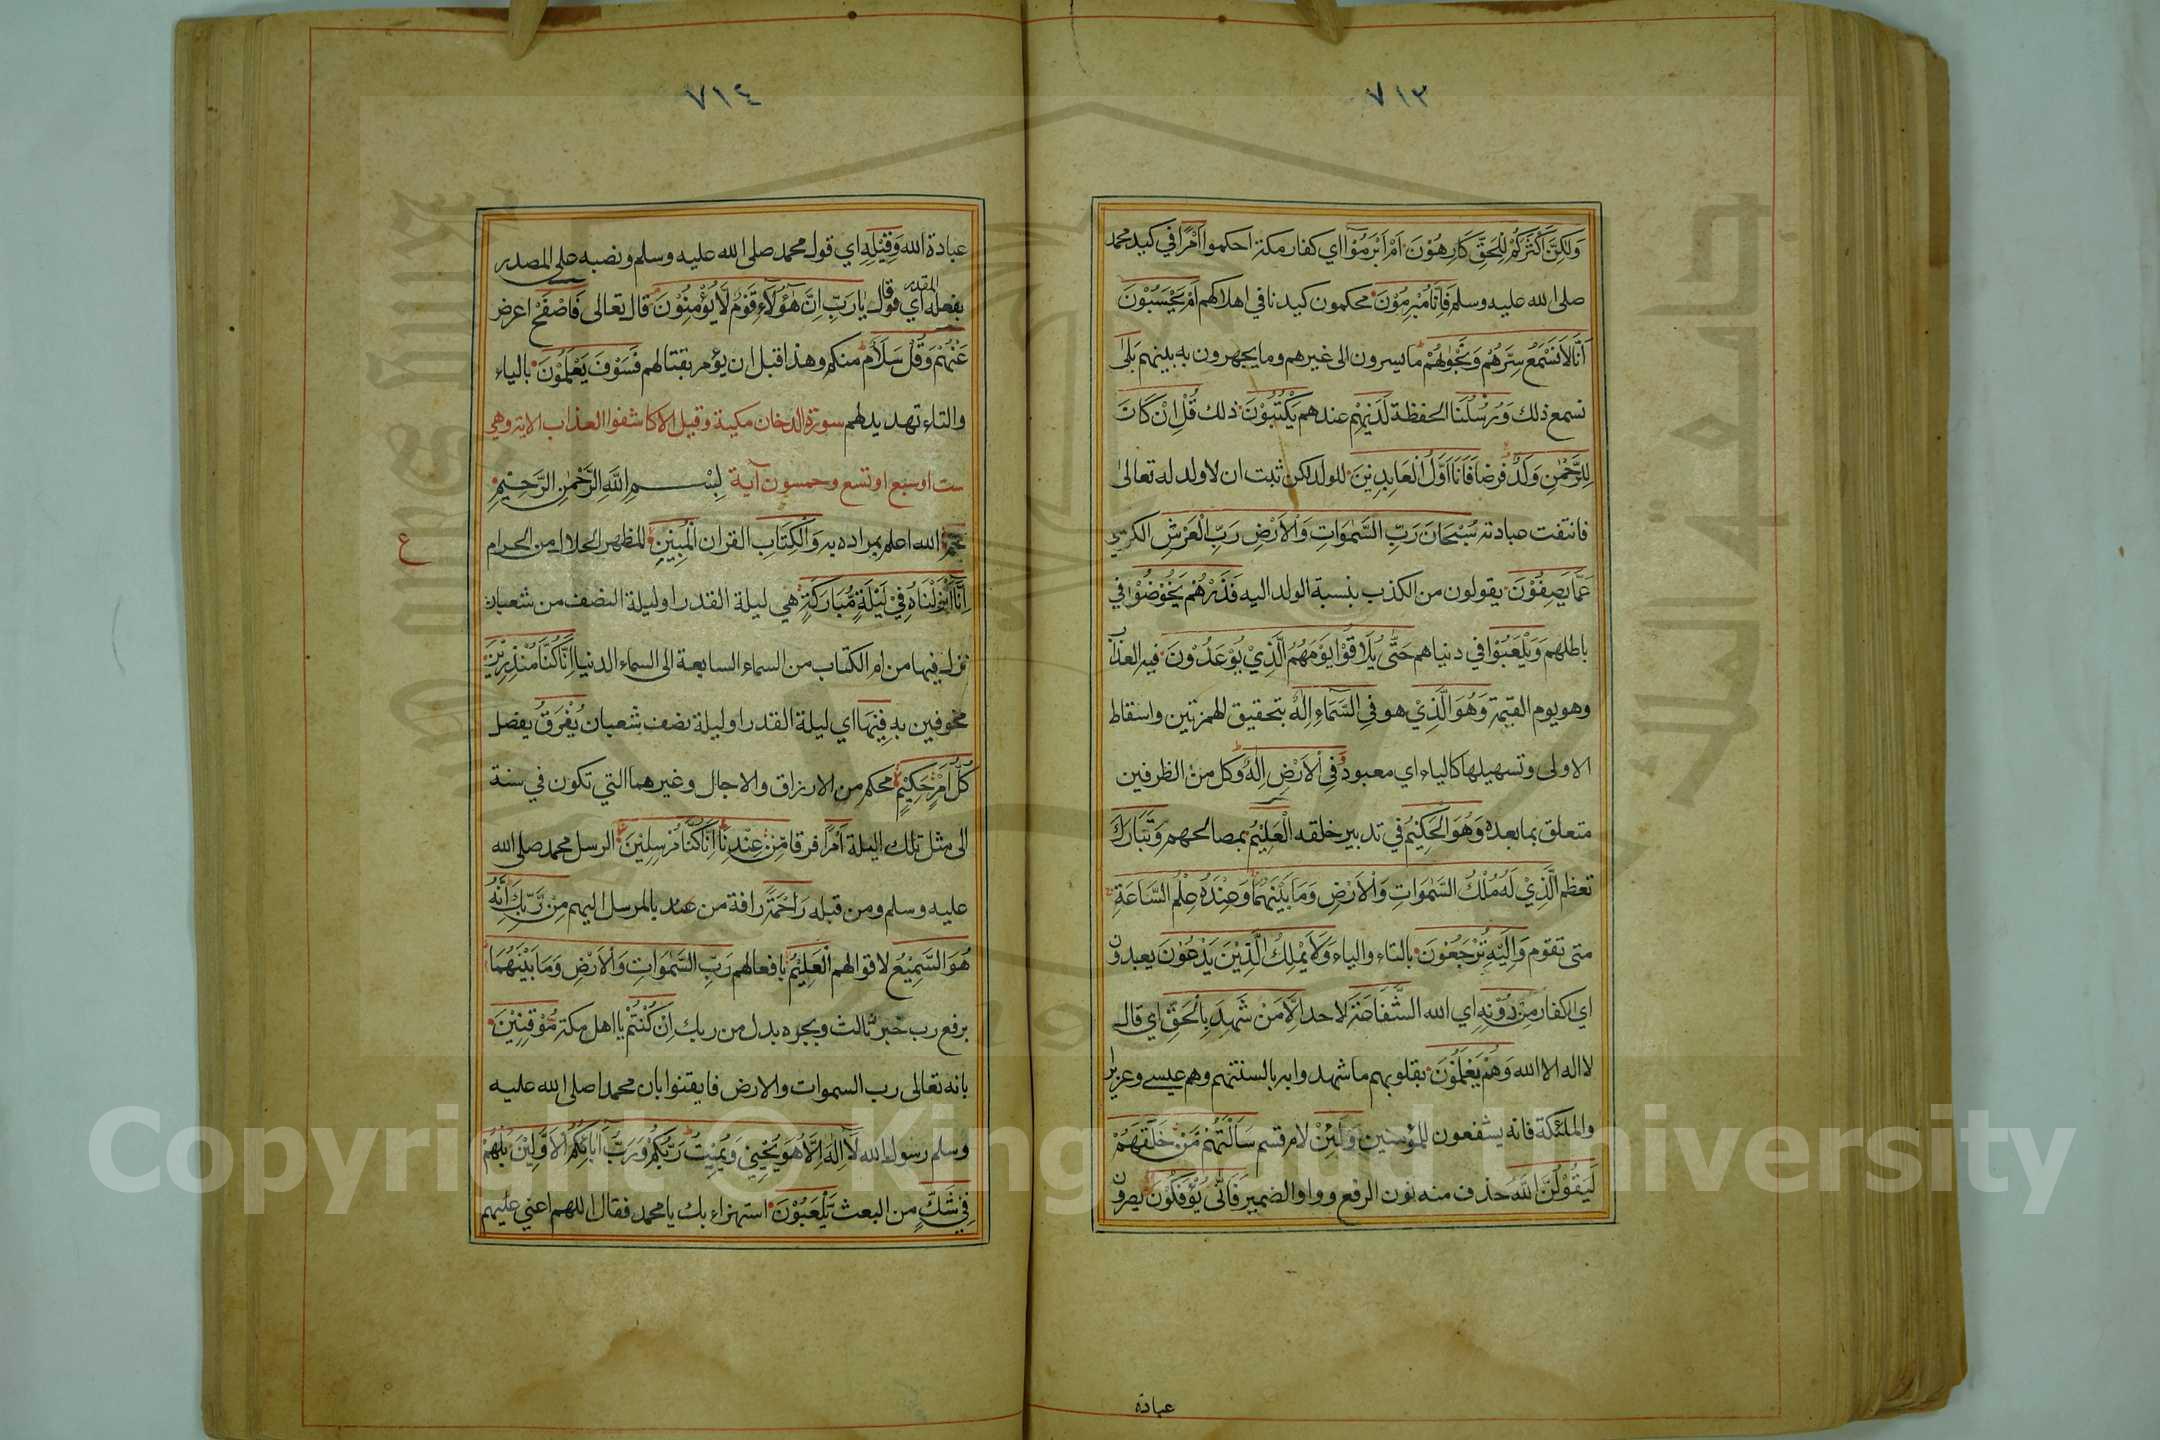 ٧١٣
وَلٰكِنَّ أَكْثَرَكُمْ لِلْحَقِّ كَارِهُوْنَ اَمْ اَبْرَمُوْٓا اي كفار مكة احكموا اَمْرًا في كيد محمد
صلى الله عليه وسلم فَاِنَّا مُبْرِمُوْنَ محكمون كيدنا في اهلاكهم اَمْ يَحْسَبُوْنَ
اَنَّا لَا نَسْمَعُ سِرَّهُمْ وَنَجْوٰىهُمْ ما يسرون الى غيرهم وما يجهرون به بينهم بَلٰى
نسمع ذلك وَرُسُلُنَا الحفظة لَدَيْهِمْ عندهم يَكْتُبُوْنَ ذلك قُلْ اِنْ كَانَ
لِلرَّحْمٰنِ وَلَدٌ فرضا فَاَنَا اَوَّلُ الْعَابِدِيْنَ للولد لكن ثبت ان لا ولد له تعالى
فانتفت عبادته سُبْحَانَ رَبِّ السَّمٰوَاتِ وَالْاَرْضِ رَبِّ الْعَرْشِ الكرسي
عَمَّا يَصِفُوْنَ يقولون من الكذب بنسبة الولد اليه فَذَرْهُمْ يَخُوْضُوْا في
باطلهم وَيَلْعَبُوْا في دنياهم حَتّٰى يُلَاقُوْا يَوْمَهُمُ الَّذِيْ يُوْعَدُوْنَ فيه العذاب
وهو يوم القيمة وَهُوَ الَّذِيْ هو فِي السَّمَآءِ اِلٰهٌ بتحقيق الهمزتين واسقاط
الاولى وتسهيلها كالياء اي معبود وَفِي الْاَرْضِ اِلٰهٌ وكل من الظرفين
متعلق بما بعده وَهُوَ الْحَكِيْمُ في تدبير خلقه الْعَلِيْمُ بمصالحهم وَتَبَارَكَ
تعظم الَّذِيْ لَهُ مُلْكُ السَّمٰوَاتِ وَالْاَرْضِ وَمَا بَيْنَهُمَا وَعِنْدَهُ عِلْمُ السَّاعَةِ
متى تقوم وَاِلَيْهِ تُرْجَعُوْنَ بالتاء والياء وَلَا يَمْلِكُ الَّذِيْنَ يَدْعُوْنَ يعبدون
اي الكفار مِنْ دُوْنِهِ اي الله الشَّفَاعَةَ لاحد اِلَّا مَنْ شَهِدَ بِالْحَقِّ اي قال
لا اله الا الله وَهُمْ يَعْلَمُوْنَ بقلوبهم ما شهدوا به بالسنتهم وهم عيسى وعزير
والملئكة فانه يشفعون للمؤمنين وَلَئِنْ لام قسم سَاَلْتَهُمْ مَّنْ خَلَقَهُمْ
لَيَقُوْلُنَّ اللّٰهُ حذف منه نون الرفع وواو الضمير فَاَنّٰى يُؤْفَكُوْنَ يصرفون
عبادة
٧١٤
عبادة الله وَقِيْلِهِ اي قول محمد صلى الله عليه وسلم ونصبه على المصدر
بفعله المقدر اي وقال يَارَبِّ اِنَّ هٰٓؤُلَآءِ قَوْمٌ لَا يُؤْمِنُوْنَ قال تعالى فَاصْفَحْ اعرض
عَنْهُمْ وَقُلْ سَلَامٌ منكم وهذا قبل ان يؤمر بقتالهم فَسَوْفَ يَعْلَمُوْنَ بالياء
والتاء تهديد لهم سورة الدخان مكية وقيل الا كاشفوا العذاب الاية وهي
ست او سبع او تسع وخمسون آية بِسْمِ اللّٰهِ الرَّحْمٰنِ الرَّحِيْمِ
حٰمٓ الله اعلم بمراده به وَالْكِتَابِ القران الْمُبِيْنِ المظهر الحلال من الحرام
ع
اِنَّا اَنْزَلْنَاهُ فِيْ لَيْلَةٍ مُّبَارَكَةٍ هي ليلة القدر او ليلة النصف من شعبان
نزل فيها من ام الكتاب من السماء السابعة الى السماء الدنيا اِنَّا كُنَّا مُنْذِرِيْنَ
مخوفين به فِيْهَا اي ليلة القدر او ليلة نصف شعبان يُفْرَقُ يفصل
كُلُّ اَمْرٍ حَكِيْمٍ محكم من الارزاق والاجال وغيرهما التي تكون في سنة
الى مثل تلك الليلة اَمْرًا فرقا مِّنْ عِنْدِنَا اِنَّا كُنَّا مُرْسِلِيْنَ الرسل محمد صلى الله
عليه وسلم ومن قبله رَحْمَةً رافة من عندنا بالمرسل اليهم مِنْ رَّبِّكَ اِنَّهُ
هُوَ السَّمِيْعُ لاقوالهم الْعَلِيْمُ بافعالهم رَبِّ السَّمٰوَاتِ وَالْاَرْضِ وَمَا بَيْنَهُمَا
برفع رب خبر ثالث وبجره بدل من ربك اِنْ كُنْتُمْ يا اهل مكة مُّوْقِنِيْنَ
بانه تعالى رب السموات والارض فايقنوا بان محمدا صلى الله عليه
وسلم رسول الله لَآ اِلٰهَ اِلَّا هُوَ يُحْيِيْ وَيُمِيْتُ رَبُّكُمْ وَرَبُّ اٰبَآئِكُمُ الْاَوَّلِيْنَ بَلْ هُمْ
فِيْ شَكٍّ من البعث يَّلْعَبُوْنَ استهزاء بك يا محمد فقال اللهم اعني عليهم
Copyright © King Saud University